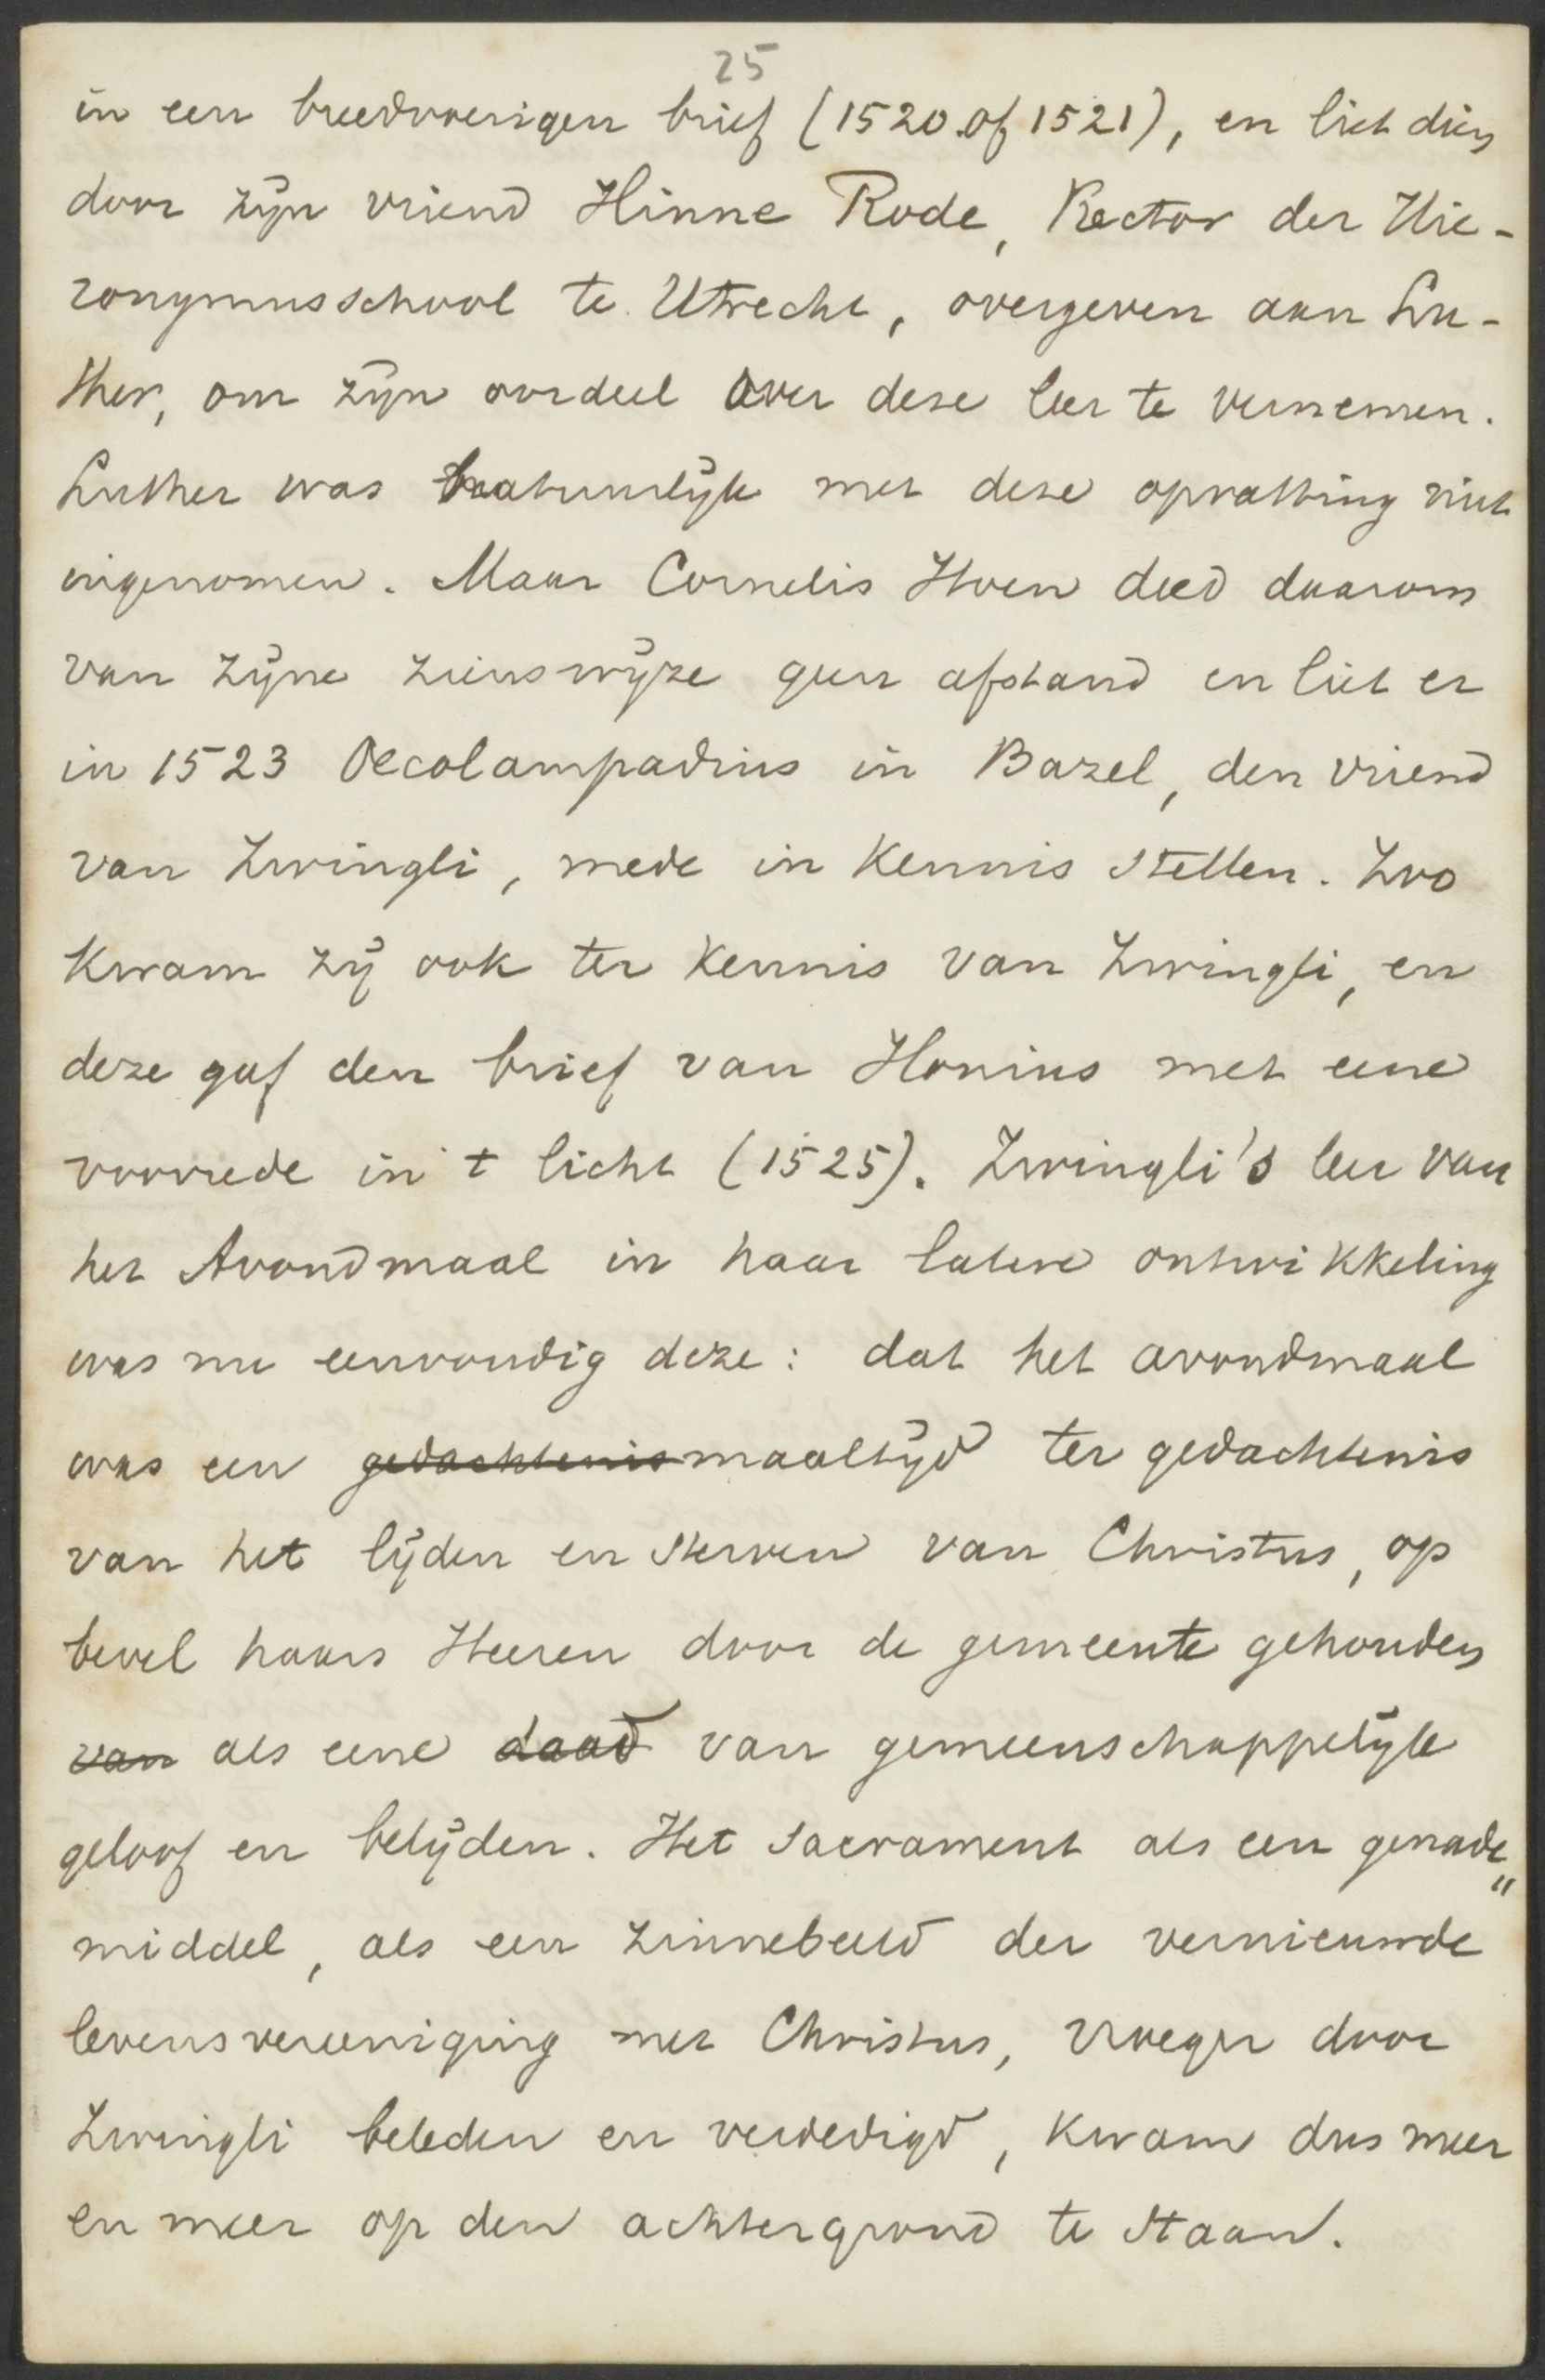 25
in een breedvoerigen brief (1520 of 1521), en liet dien
door zijn vriend Hinne Rode, Rector der Hie-
ronymusschool te Utrecht, overgeven aan Lu-
ther, om zijn oordeel over deze leer te vernemen.
Luther was natuurlijk met deze opvatting niet
ingenomen. Maar Cornelis Hoen deed daarom
van zijne zienswijze geen afstand en liet er
in 1523 Oecolampadius in Bazel, den vriend
van Zwingli, mede in kennis stellen. Zoo
kwam zij ook ter kennis van Zwingli, en
deze gaf den brief van Honius met eene
voorrede in 't licht (1525). Zwingli's leer van
het Avondmaal in haar latere ontwikkeling
was nu eenvoudig deze: dat het avondmaal
was een gedachtenismaaltijd ter gedachtenis
van het lijden en sterven van Christus, op
bevel haars Heeren door de gemeente gehouden
van als eene daad van gemeenschappelijk
geloof en belijden. Het Sacrament als een genade„
middel, als een zinnebeeld der vernieuwde
levensvereeniging met Christus, vroeger door
Zwingli beleden en verdedigd, kwam dus meer
en meer op den achtergrond te staan.